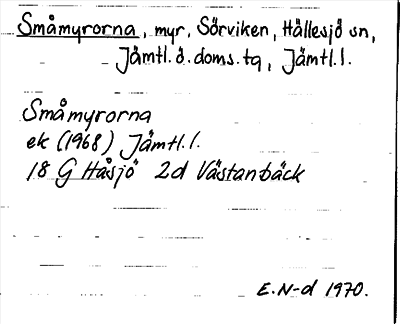 Småmyrorna, myr, Sörviken, Hällesjö sn,
Jämtl.ö.doms.tg, Jämtl.l.
Småmyrorna
ek (1968) Jämtl.l.
18 G Håsjö 2d Västanbäck
E.N-d 1970.